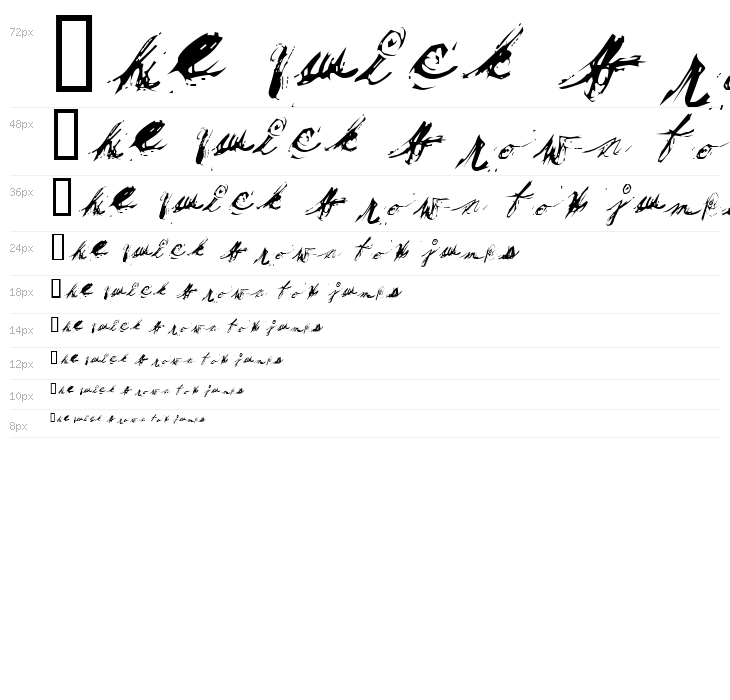 72px ▯he quick br
48px ▯he quick brown fo
36px ▯he quick brown fox jumps
24px ▯he quick brown fox jumps
18px ▯he quick brown fox jumps
14px ▯he quick brown fox jumps
12px ▯he quick brown fox jumps
10px ▯he quick brown fox jumps
8px ▯he quick brown fox jumps